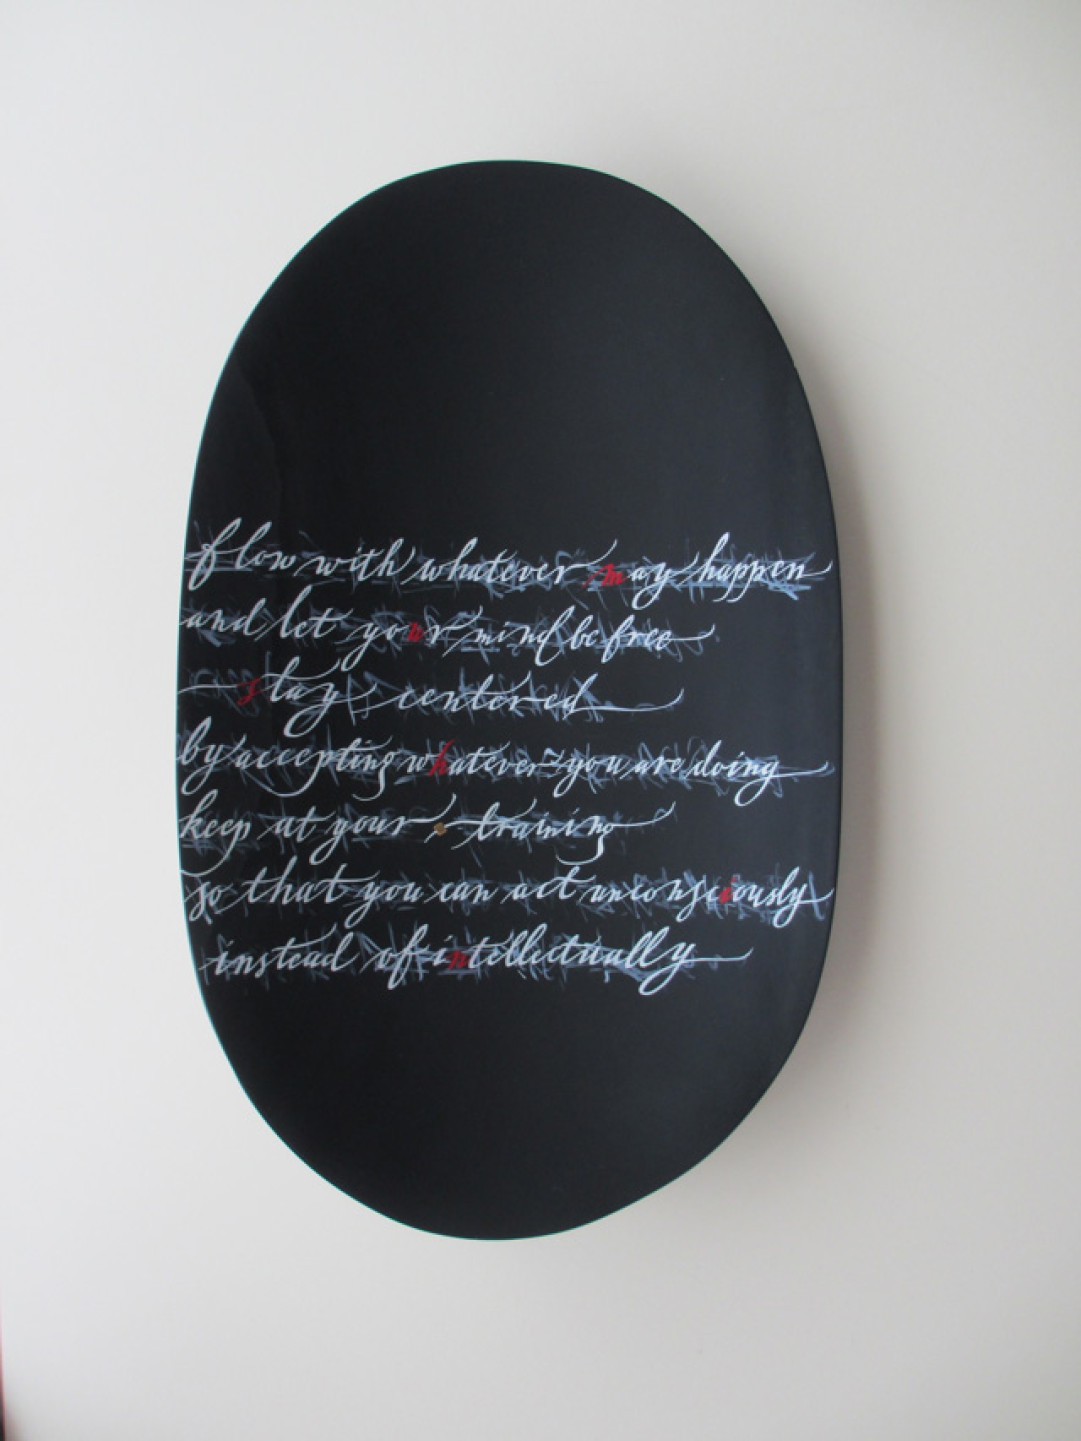 flow with whatever may happen
and let your mind be free
stay centered
by accepting whatever you are doing
keep at your training
so that you can act unconsciously
instead of intellectually